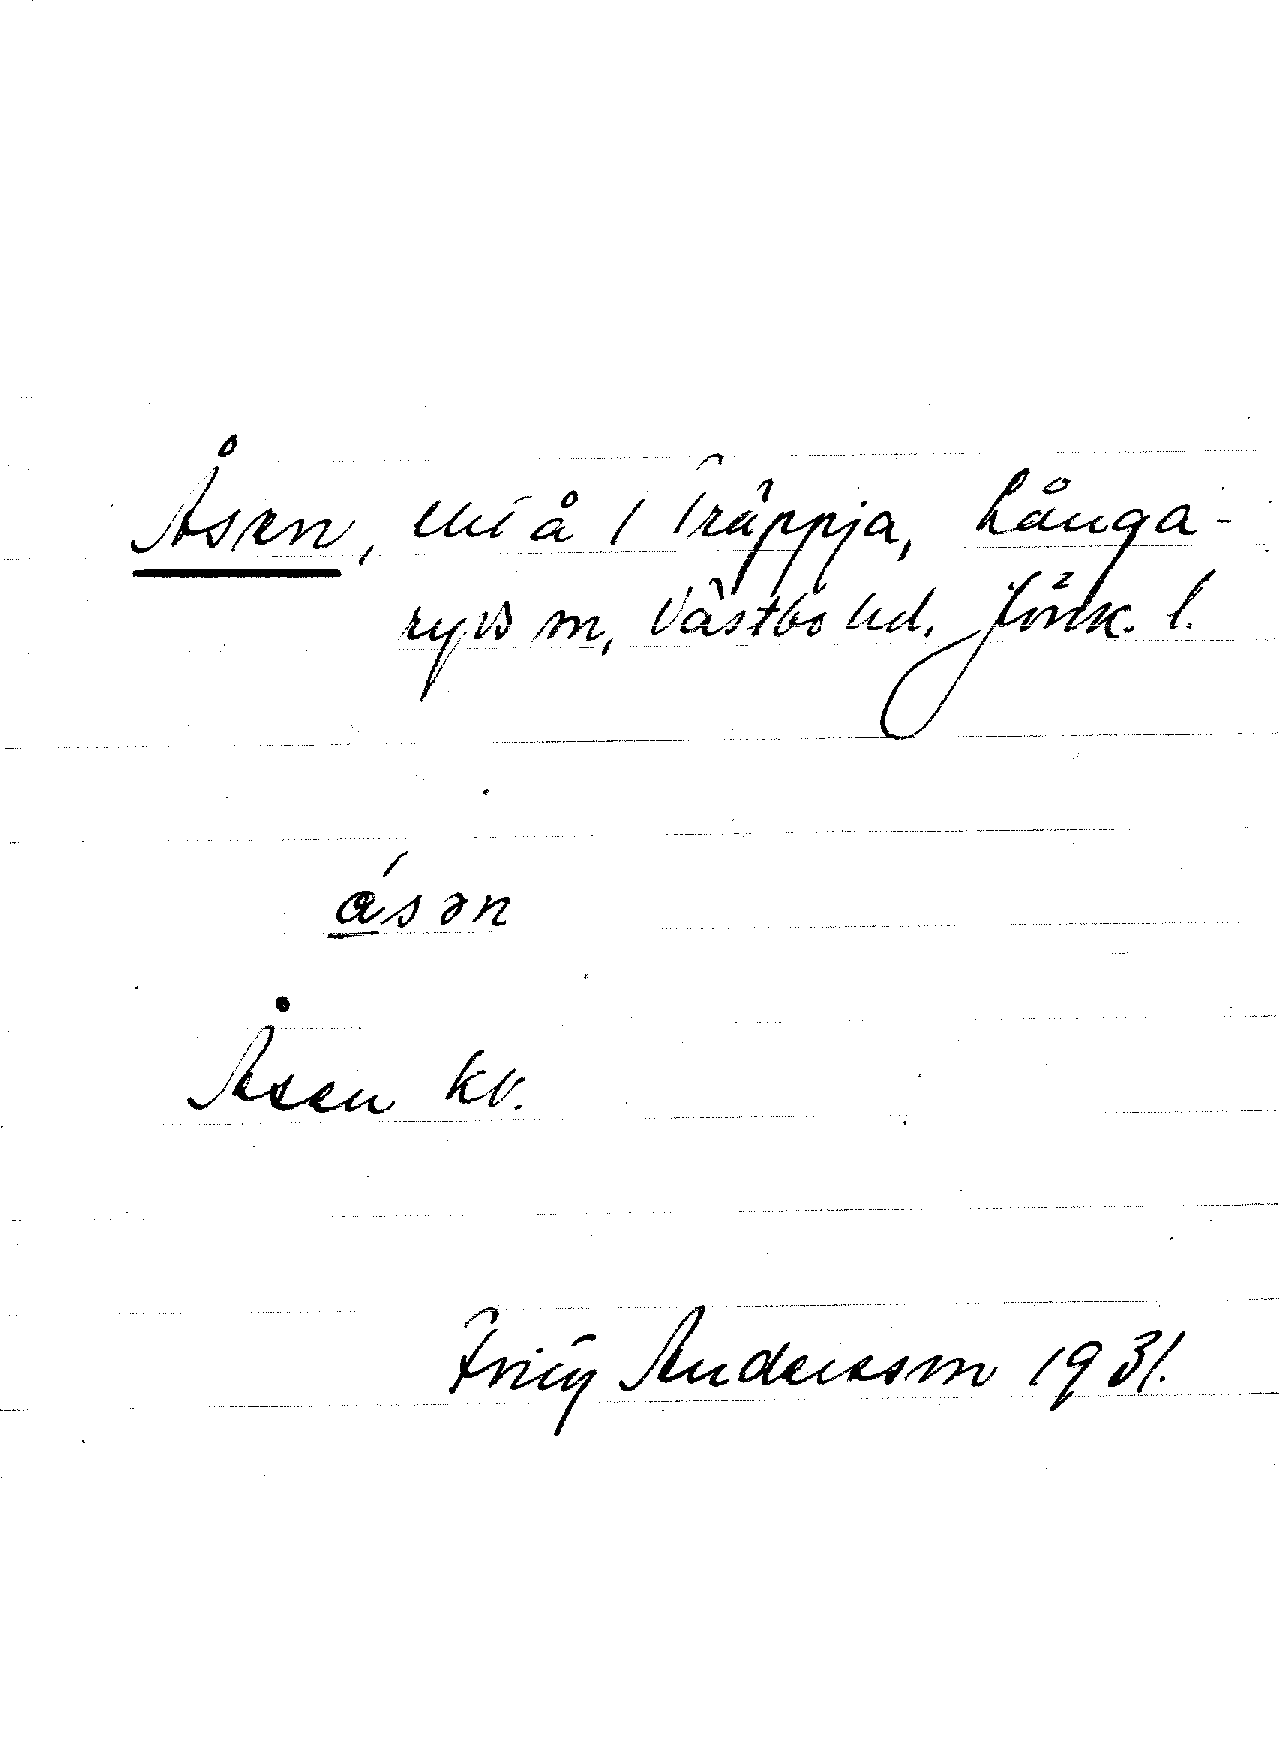 Åsen, uti å i Träppja, Långa-
ryds sn, Västbo hd. Jönk. l.
åsən
Åsen kv.
Andersson 1931.